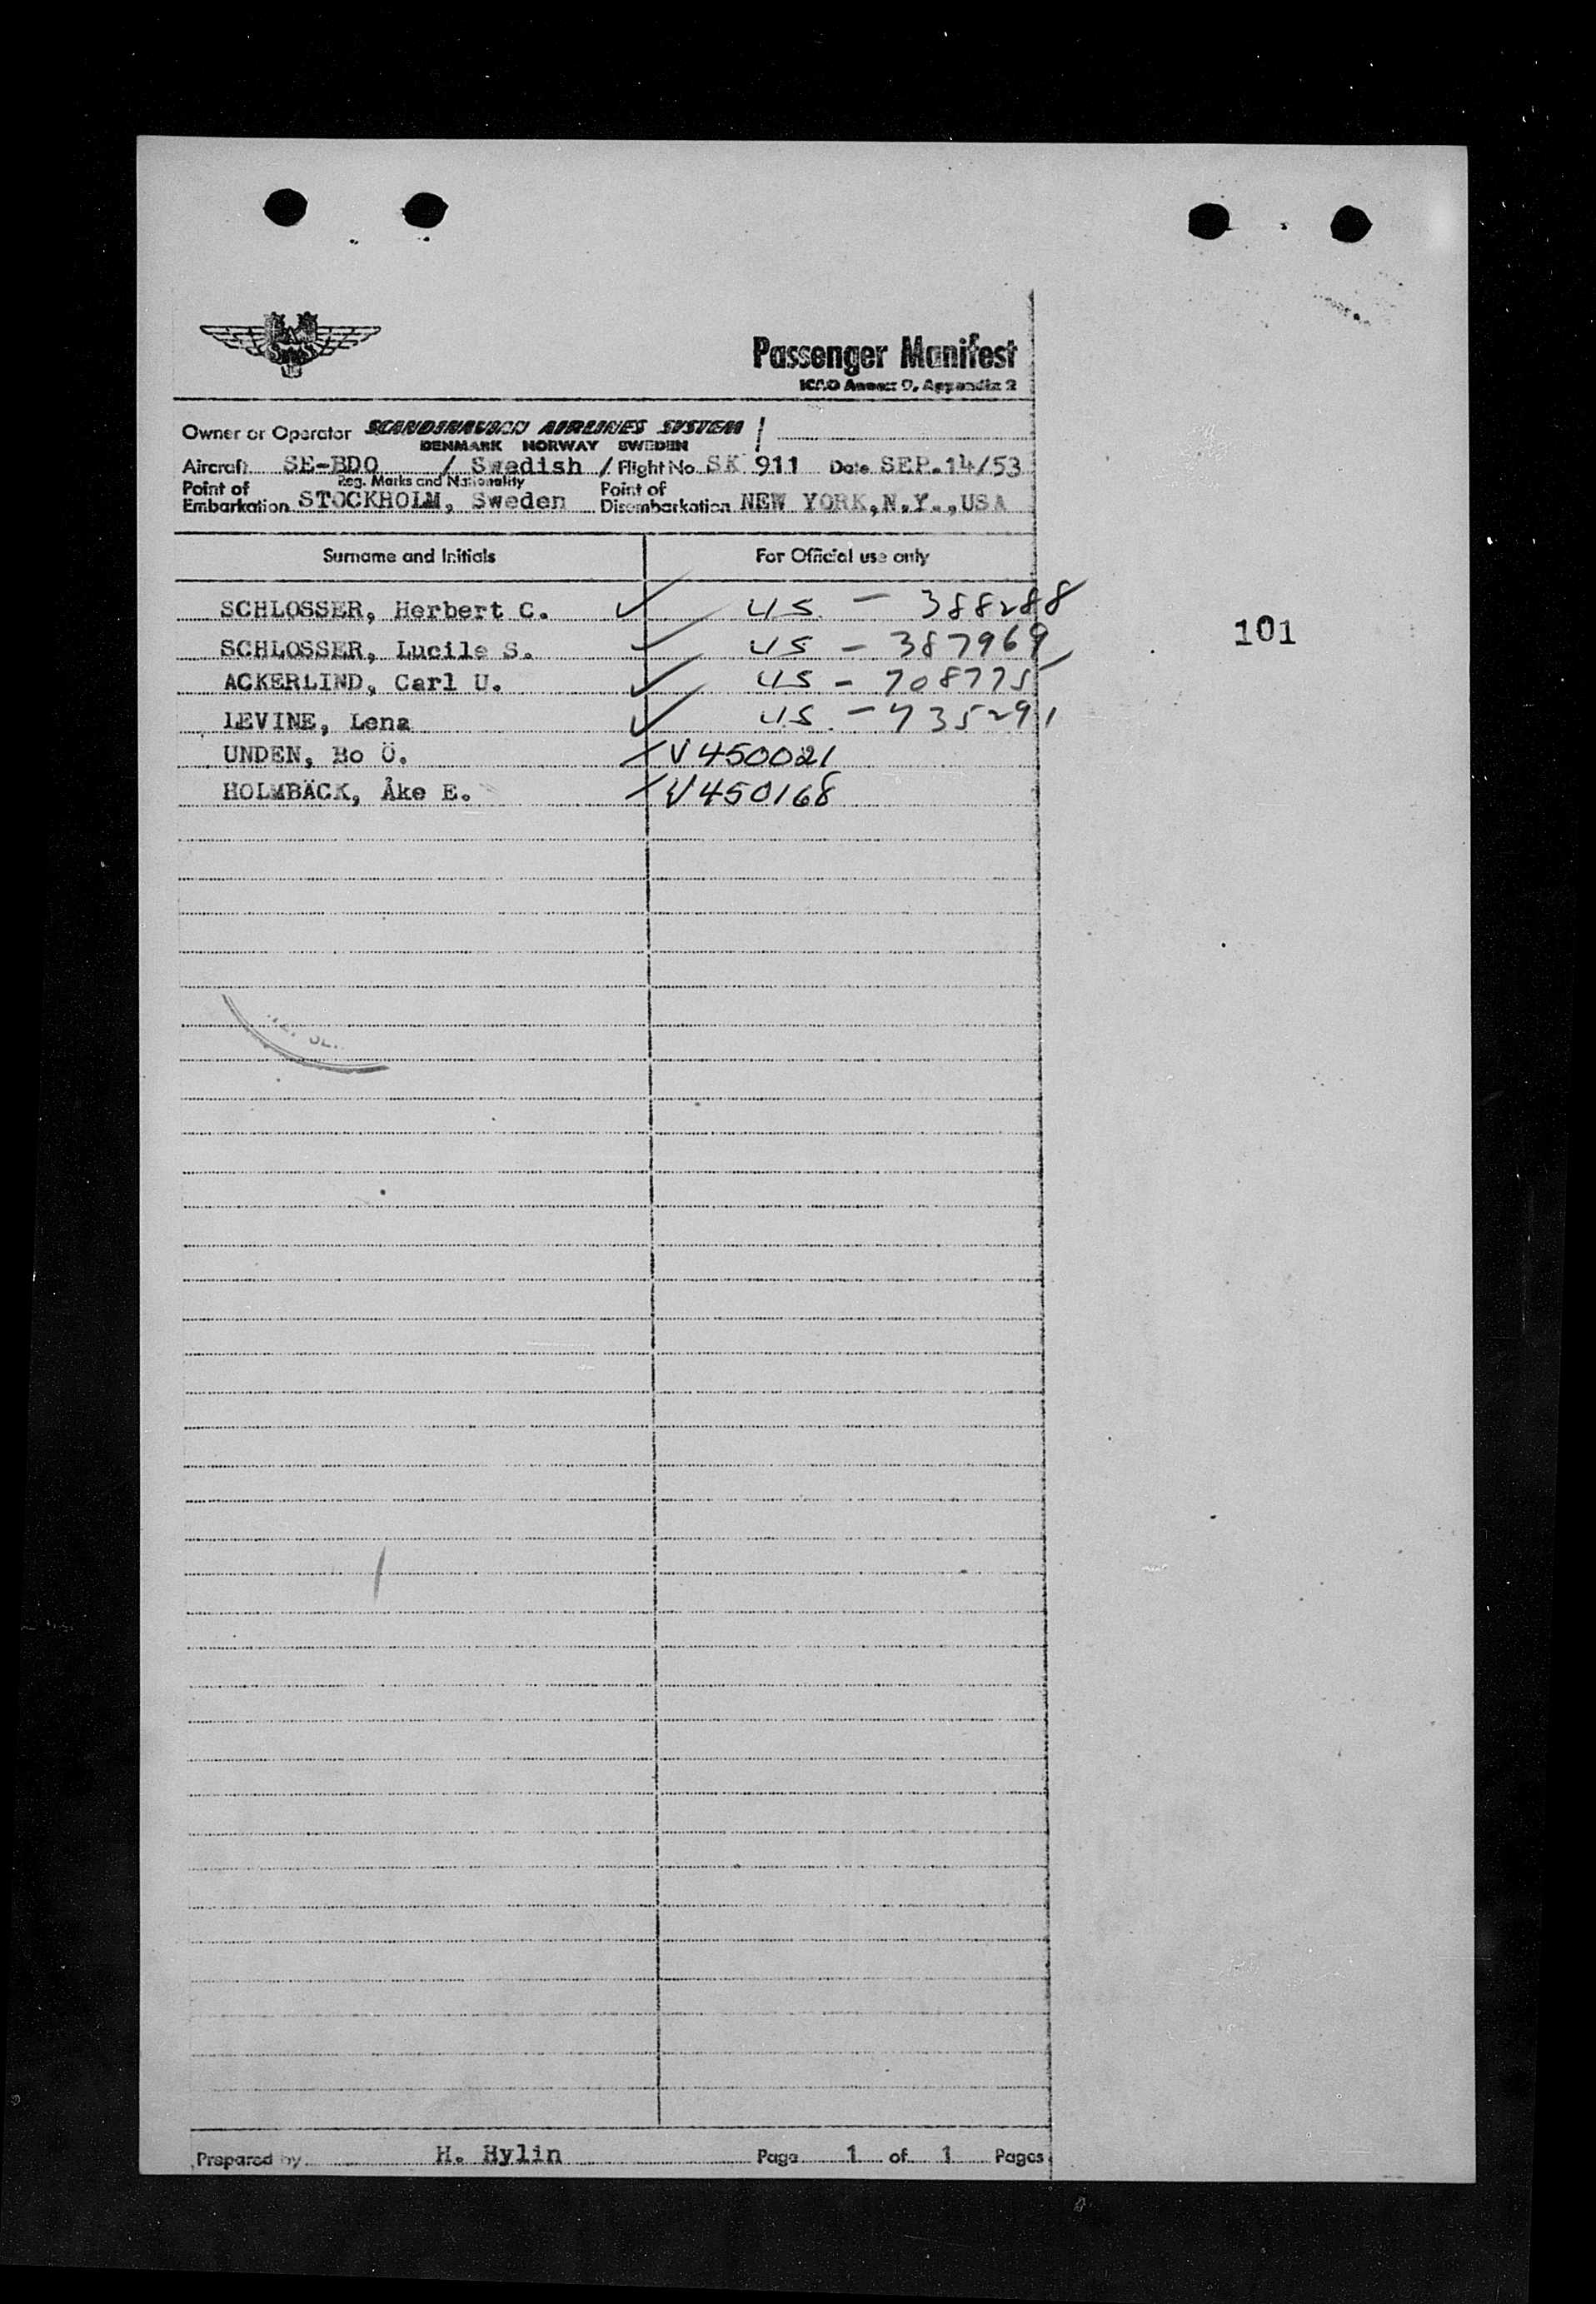 Passenger Manifest
ICAO Annex 9, Appendix 2
Owner or Operator SCANDINAVIAN AIRLINES SYSTEM /
DENMARK NORWAY SWEDEN
Aircraft SE-BDO / Swedish / Flight No. SK 911 Date SEP.14/53
Reg. Marks and Nationality
Point of Embarkation STOCKHOLM, Sweden Point of Disembarkation NEW YORK,N.Y.,USA
Surname and Initials For Official use only
SCHLOSSER, Herbert C. ✓ US - 388288
SCHLOSSER, Lucile S. ✓ US - 387969
ACKERLIND, Carl U. ✓ US - 708775
LEVINE, Lena ✓ US - 735291
UNDEN, Bo Ö. V450021
HOLMBÄCK, Åke E. V450168
101
Prepared by H. Hylin Page 1 of 1 Pages